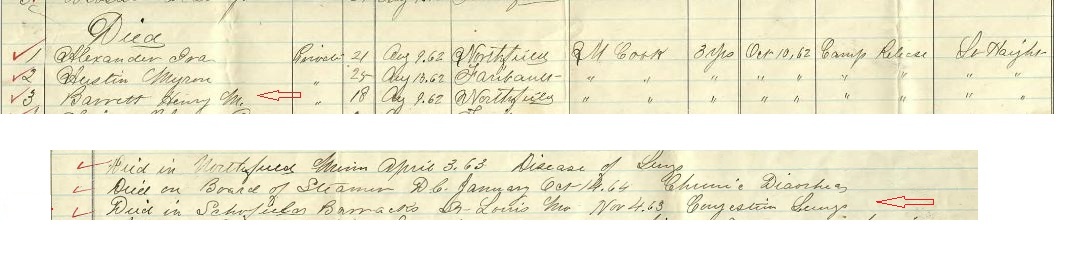 Died
1 Alexander Ira Private 21 Aug 9.62 Northfield R M Cook 3 Yrs Oct 10, 62 Camp Release Lt Haight
2 Austin Myron " 25 Aug 13.62 Faribault " " " " " " " " " "
3 Barrett Henry M. " 18 Aug 9.62 Northfield " " " " " " " " " "
Died in Northfield Minn April 3.63 Disease of Lung
Died on Board of Steamer D.C. January Oct 14.64 Chronic Diarrhea
Died in Schofields Barracks St Louis Mo Nov 4.63 Congestion Lungs